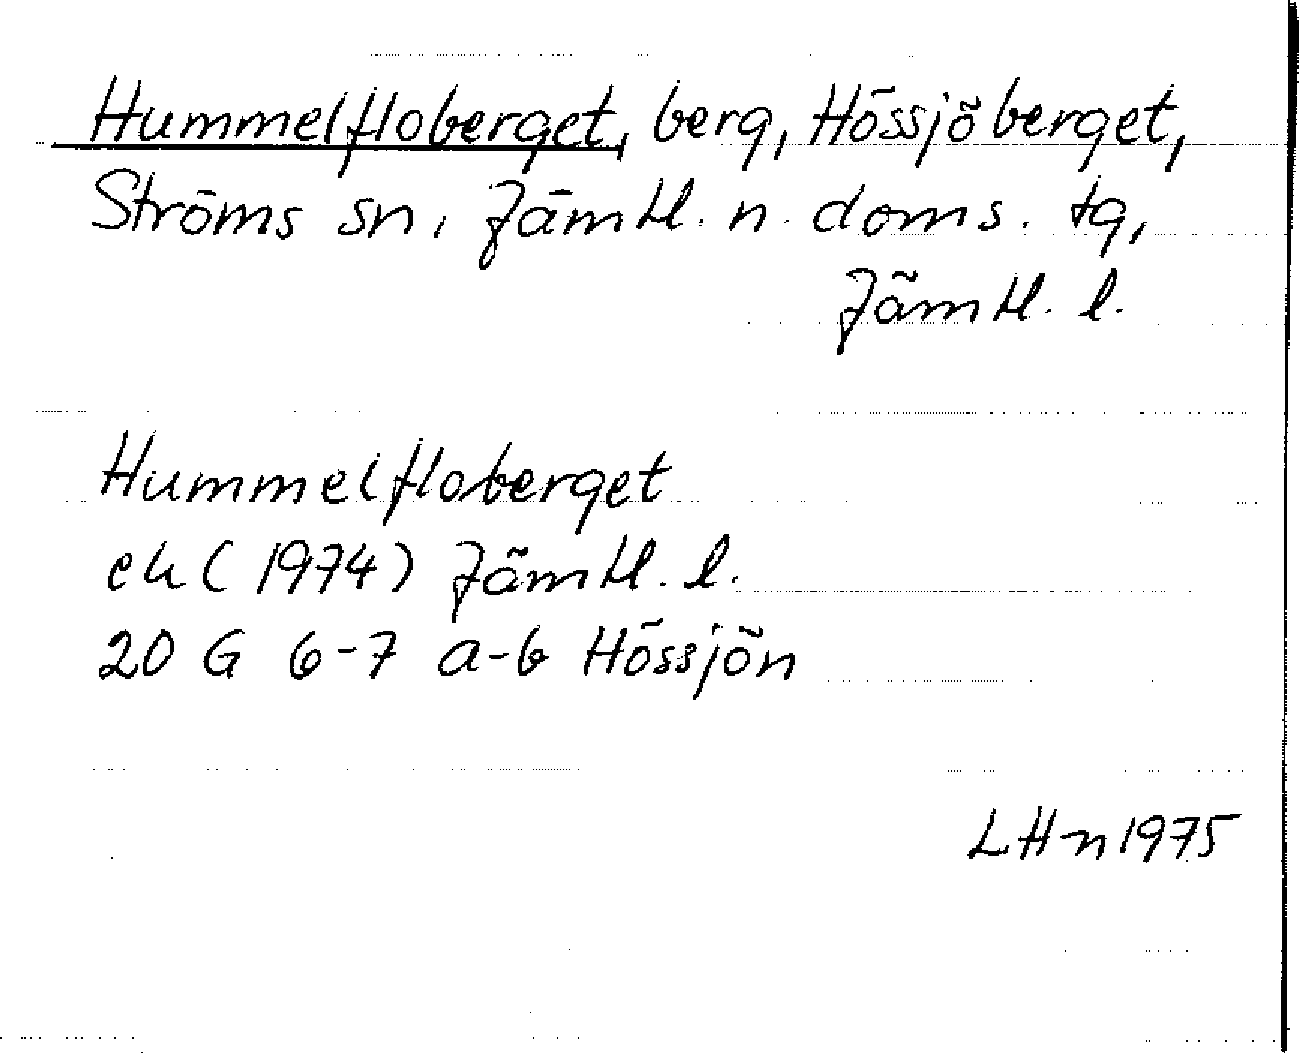 Hummelfloberget, berg, Hössjöberget,
Ströms sn, Jämtl. n. doms. tg,
Jämtl. l.
Hummelfloberget
ek (1974) Jämtl. l.
20 G 6-7 a-b Hössjön
LHn 1975